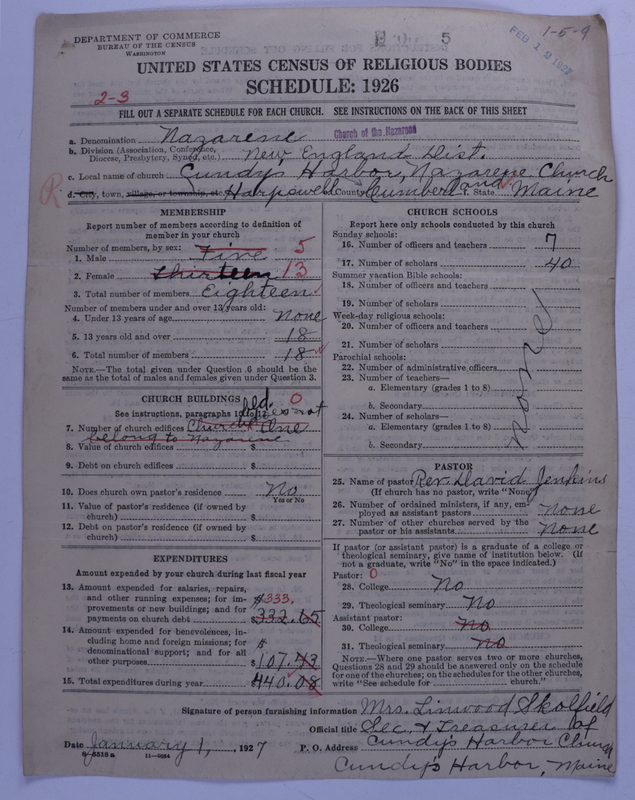 DEPARTMENT OF COMMERCE
BUREAU OF THE CENSUS
WASHINGTON
5
FEB 19 1927
1-5-9
UNITED STATES CENSUS OF RELIGIOUS BODIES
SCHEDULE: 1926
2-3
FILL OUT A SEPARATE SCHEDULE FOR EACH CHURCH. SEE INSTRUCTIONS ON THE BACK OF THIS SHEET
a. Denomination Nazarene Church of the Nazarene
b. Division (Association, Conference, Diocese, Presbytery, Synod, etc.) New England Dist.
c. Local name of church Cundys Harbor, Nazarene Church
R
d. City, town, village, or township, etc. Harpswell e. County Cumberland f. State Maine
MEMBERSHIP
Report number of members according to definition of
member in your church
Number of members, by sex:
1. Male Five 5
2. Female Thirteen 13
3. Total number of members Eighteen
Number of members under and over 13 years old:
4. Under 13 years of age None
5. 13 years old and over 18
6. Total number of members 18
NOTE.—The total given under Question 6 should be the
same as the total of males and females given under Question 3.
CHURCH BUILDINGS 0
See instructions, paragraphs 10 to 12
7. Number of church edifices Church One
belong to Nazarine
8. Value of church edifices $
9. Debt on church edifices $
10. Does church own pastor's residence No
Yes or No
11. Value of pastor's residence (if owned by
church) $
12. Debt on pastor's residence (if owned by
church) $
EXPENDITURES
Amount expended by your church during last fiscal year
13. Amount expended for salaries, repairs,
and other running expenses; for im- $333.
provements or new buildings; and for
payments on church debt $332.65
14. Amount expended for benevolences, in-
cluding home and foreign missions; for
denominational support; and for all
other purposes $107.43
15. Total expenditures during year $440.08
CHURCH SCHOOLS
Report here only schools conducted by this church
Sunday schools:
16. Number of officers and teachers 7
17. Number of scholars 40
Summer vacation Bible schools:
18. Number of officers and teachers
19. Number of scholars
Week-day religious schools:
20. Number of officers and teachers
21. Number of scholars
Parochial schools:
22. Number of administrative officers
23. Number of teachers—
a. Elementary (grades 1 to 8)
b. Secondary
24. Number of scholars—
a. Elementary (grades 1 to 8)
b. Secondary
none
PASTOR
25. Name of pastor Rev. David Jenkins
(If church has no pastor, write "None")
26. Number of ordained ministers, if any, em-
ployed as assistant pastors none
27. Number of other churches served by the
pastor or his assistants none
If pastor (or assistant pastor) is a graduate of a college or
theological seminary, give name of institution below. (If
not a graduate, write "No" in the space indicated.)
Pastor: 0
28. College No
29. Theological seminary No
Assistant pastor:
30. College No
31. Theological seminary No
NOTE.—Where one pastor serves two or more churches,
Questions 28 and 29 should be answered only on the schedule
for one of the churches; on the schedules for the other churches,
write "See schedule for church."
Signature of person furnishing information Mrs. Linwood Skolfield
Official title Sec. & Treasurer of
Date January 1, 1927 P. O. Address Cundy's Harbor Church
8-5518a 11-9024 Cundy's Harbor, Maine